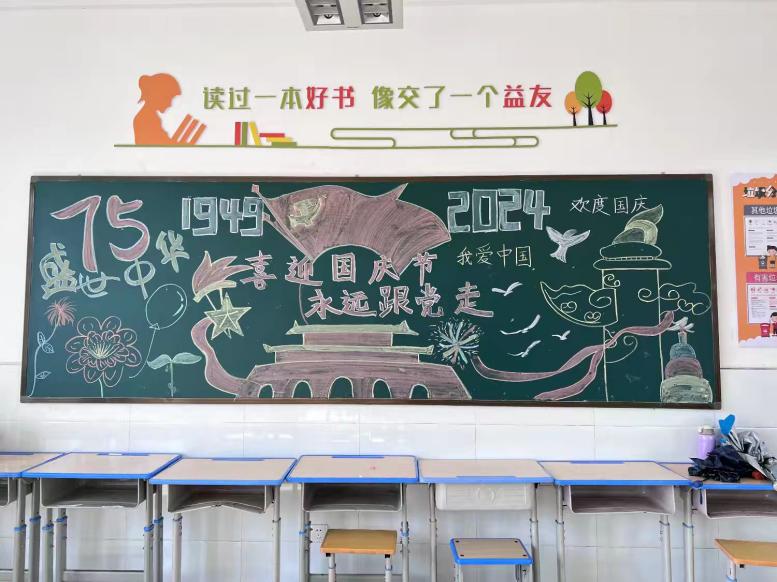 读过一本好书 像交了一个益友
75
盛世中华
1949
2024
欢度国庆
我爱中国
喜迎国庆节
永远跟党走
其他垃圾
有害垃圾